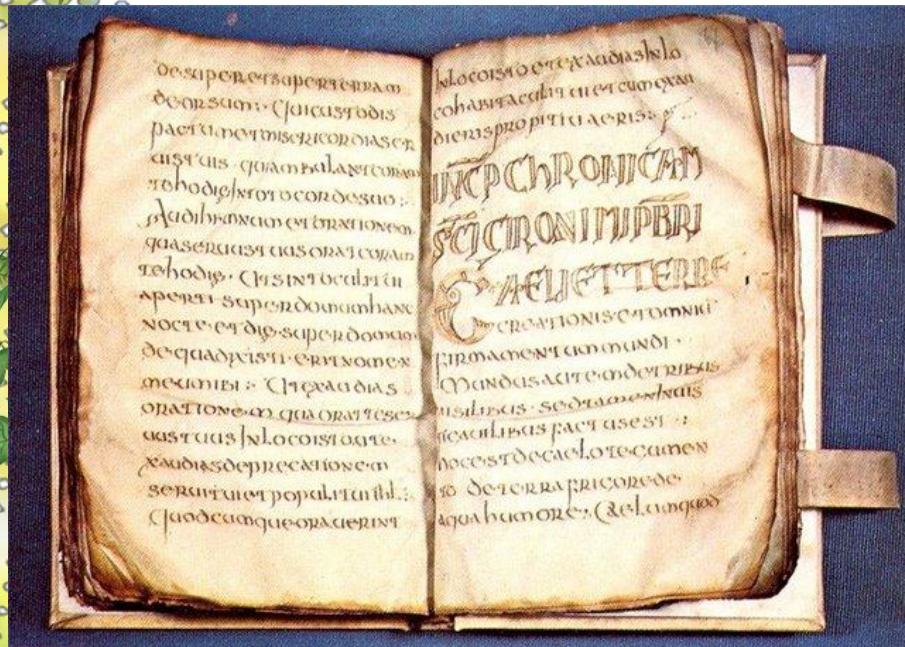 desuper et super terram
deorsum· Qui custodis
pactum et misericordias er
uis tuis· qui ambulant coram
te hodie In toto corde suo:·
Audi himnum et orationem
qua seruus tuus orat coram
te hodie· Ut sint oculi tui
aperti super domum hanc
nocte et die super domum
de qua dixisti· erit nomen
meum ibi:· Ut exaudias
orationem qua orat te ser
uus tuus In loco isto ut e
xaudias deprecationem
serui tui et populi tui ihl:·
Quodcumque orauerint
In loco isto et exaudias In lo
co habitaculi tui et cum exau
dieris propitiuaeris:·
INCP CHRONICAM
SCI CIRONIMI PBRI
CAELI ET TERRE
CREATIONIS et omniu
firmamentum mundi·
Mundus autem de tribus
sed tamen
factus est:·
hoc est de caelo tecumen
to de terra frigore de
aqua humore:· Caelum quod